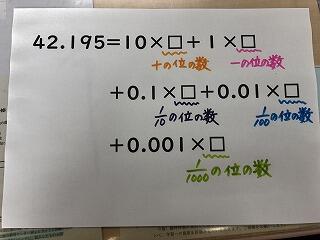 42.195=10×□+1×□
十の位の数 一の位の数
+0.1×□+0.01×□
1/10の位の数 1/100の位の数
+0.001×□
1/1000の位の数